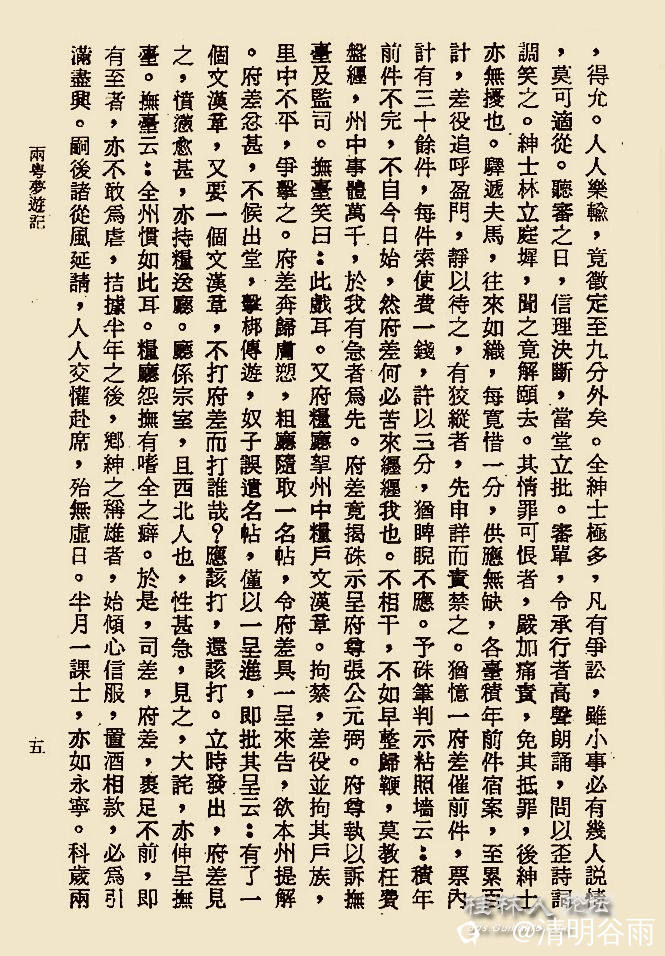 ，得允。人人樂輸，竟徵定至九分外矣。全紳士極多，凡有爭訟，雖小事必有幾人說情
，莫可適從。聽審之日，信理決斷，當堂立批。審單，令承行者高聲朗誦，間以歪詩詞
調笑之。紳士林立庭墀，聞之竟解頤去。其情罪可恨者，嚴加痛責，免其抵罪，後紳士
亦無擾也。驛遞夫馬，往來如織，每竟惜一分，供應無缺，各臺積年前件宿案，至累百
計，差役追呼盈門，靜以待之，有狡縱者，先申詳而責禁之。猶憶一府差催前件，票內
計有三十餘件，每件索使費一錢，許以三分，猶睥睨不應。予硃筆判示粘照墻云：積年
前件不完，不自今日始，然府差何必苦來纏纏我也。不相干，不如早整歸鞭，莫教枉費
盤纏，州中事體萬千，於我有急者爲先。府差竟揭硃示呈府尊張公元弼。府尊執以訴撫
臺及監司。撫臺笑曰：此戲耳。又府糧廳拏州中糧戶文漢章。拘禁，差役並拘其戶族，
里中不平，爭擊之。府差奔歸膚愬，粗廳隨取一名帖，令府差具一呈來告，欲本州提解
。府差忿甚，不候出堂，擊梆傳遊，奴子誤遺名帖，僅以一呈進，即批其呈云：有了一
個文漢章，又要一個文漢章，不打府差而打誰哉？應該打，還該打。立時發出，府差見
之，憤懣愈甚，亦持糧送廳。廳係宗室，且西北人也，性甚急，見之，大詫，亦伸呈撫
臺。撫臺云：全州慣如此耳。糧廳怨撫有嗜全之癖。於是，司差，府差，裹足不前，即
有至者，亦不敢爲虐，拮據半年之後，鄉紳之稱雄者，始傾心信服，置酒相款，必爲引
滿盡興。嗣後諸從風延請，人人交懽赴席，殆無虛日。半月一課士，亦如永寧。科歲兩
兩粵夢遊記
五
桂林人论坛
@清明谷雨